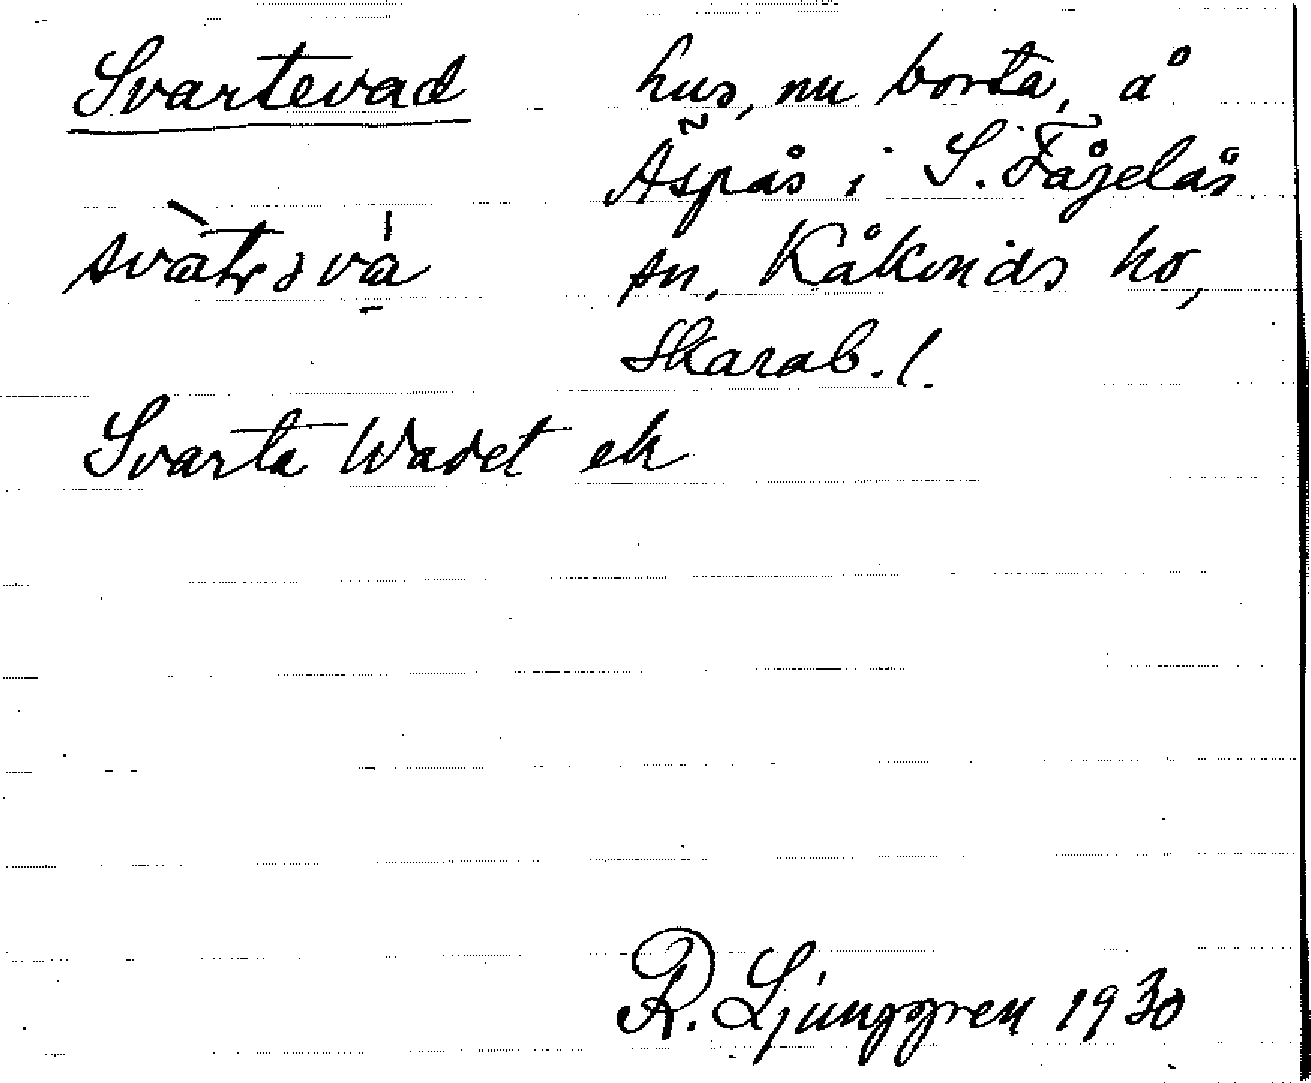 Svartevad
hus, nu borta, å
Äspås i S. Fågelås
sn, Kåkinds hd,
Skarab. l.
Svarta Wadet ek
R. Ljunggren 1930